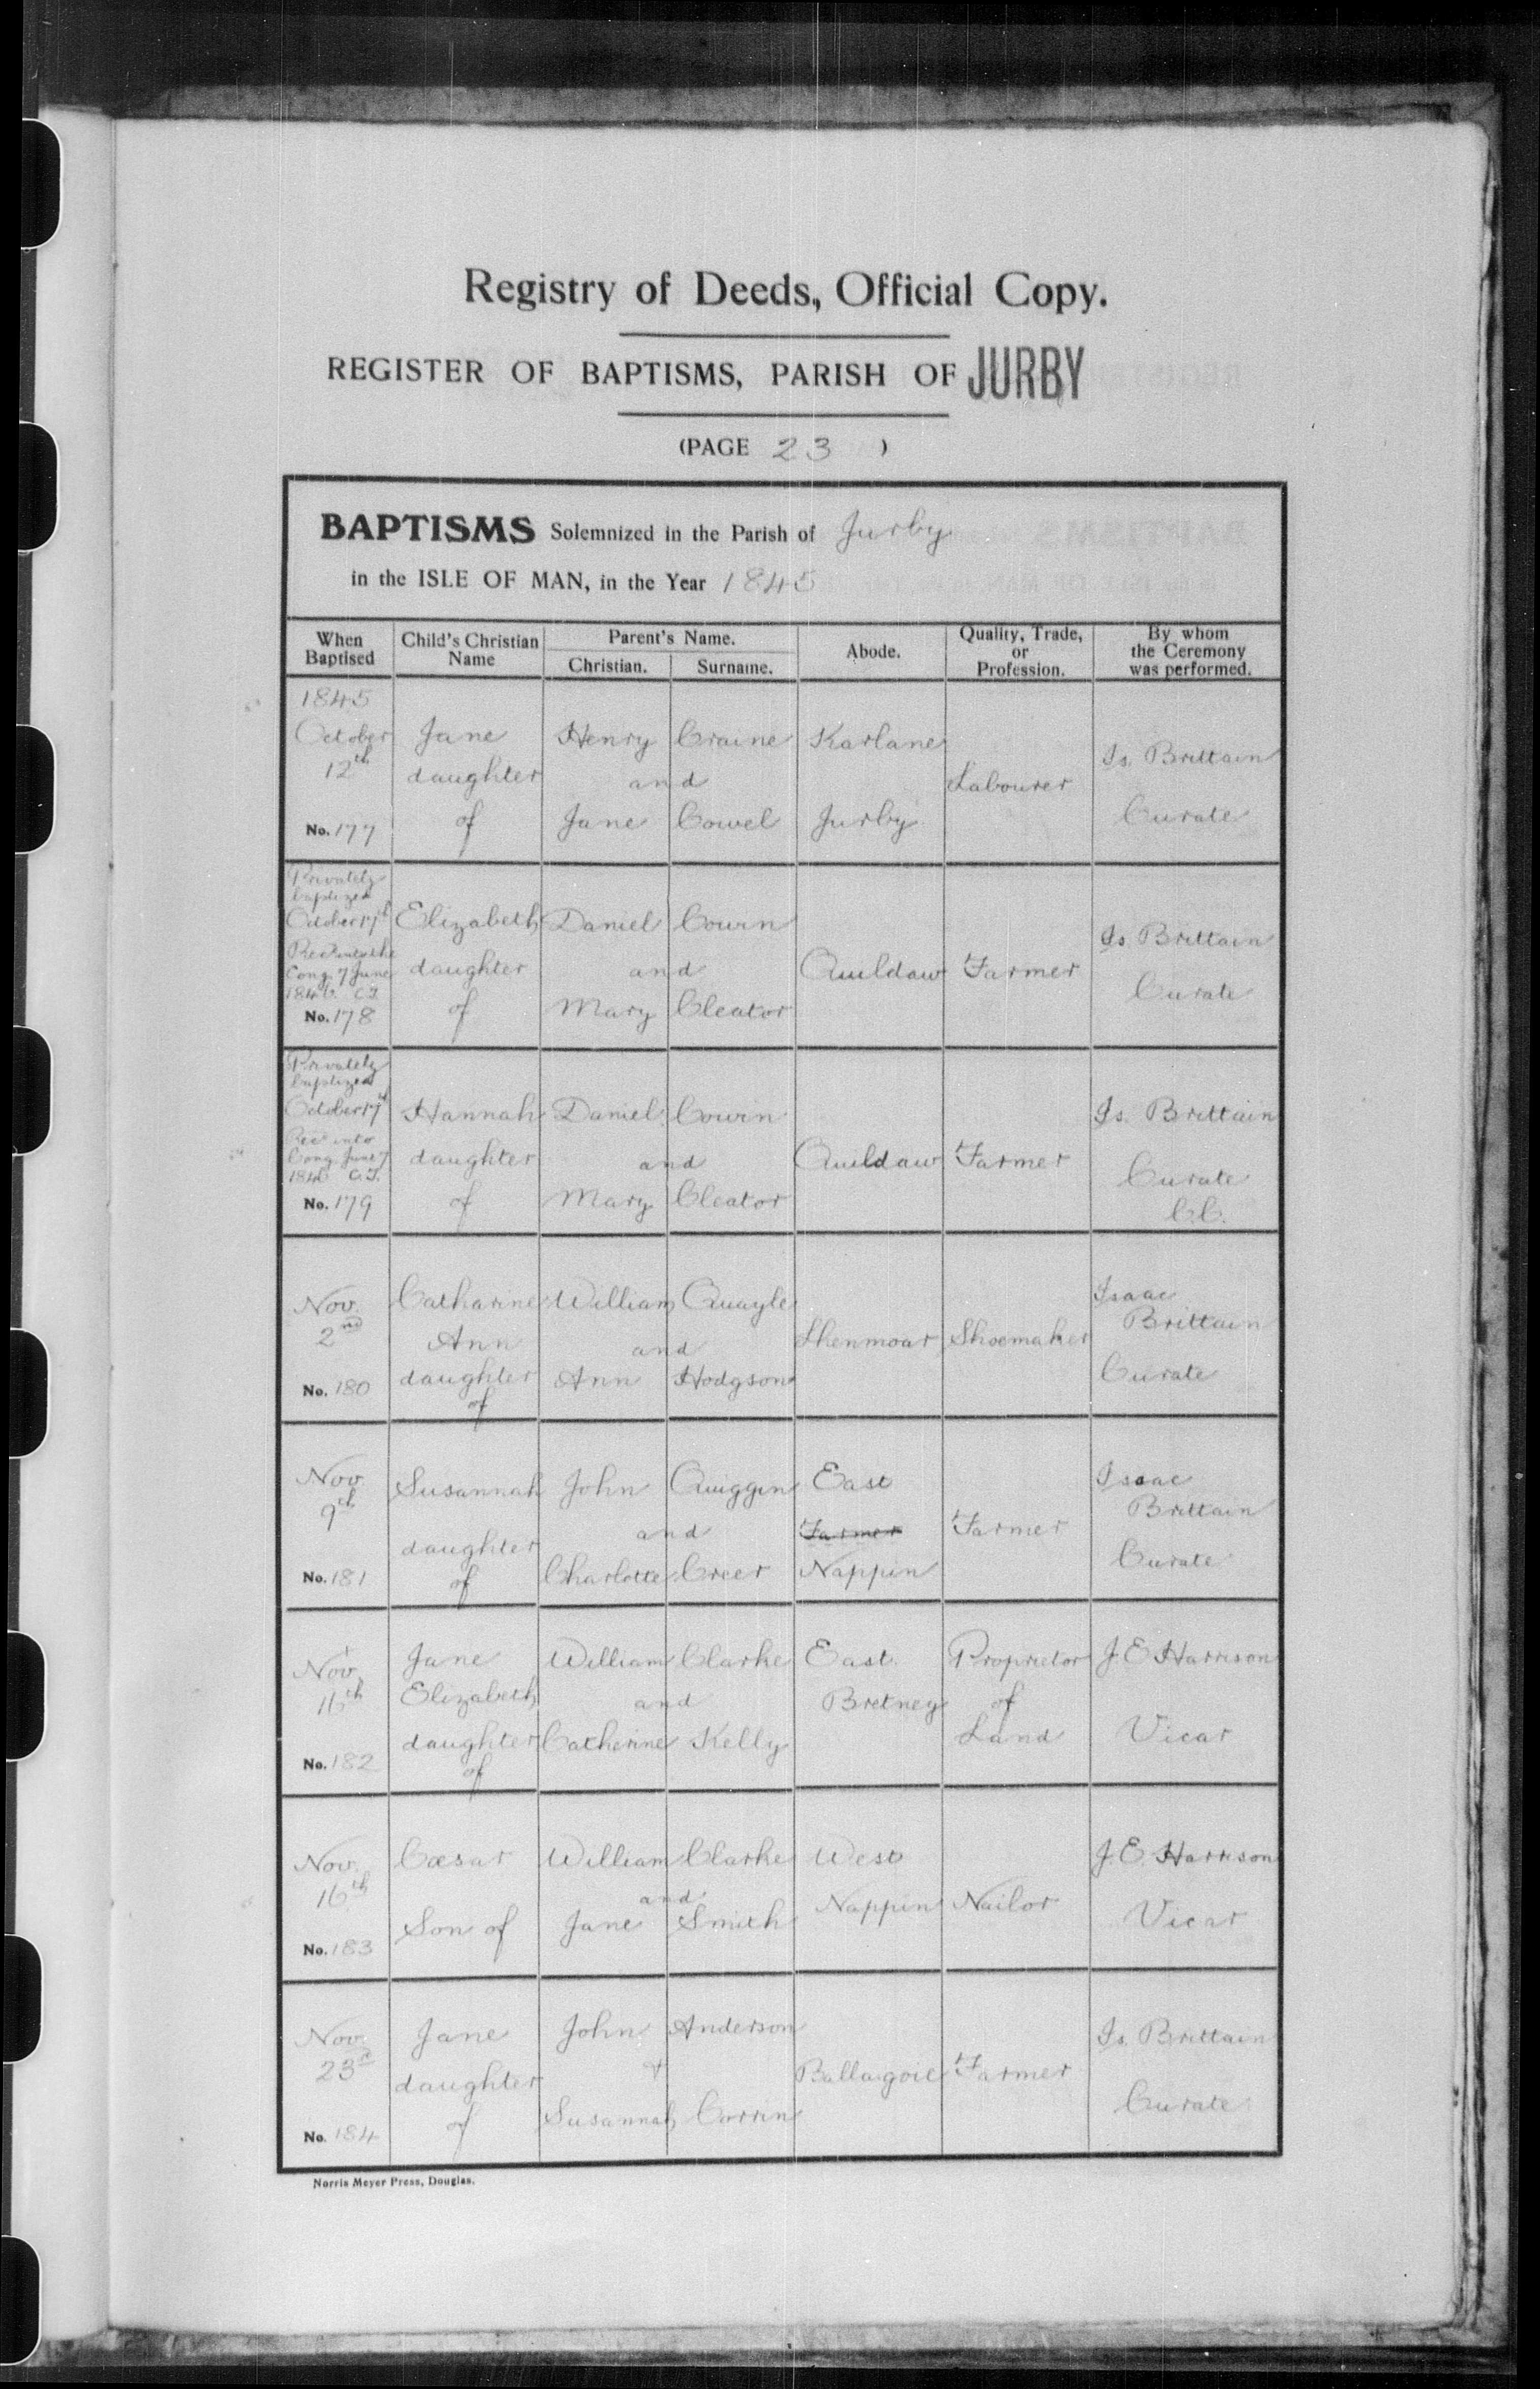 Registry of Deeds, Official Copy.
REGISTER OF BAPTISMS, PARISH OF JURBY
(PAGE 23 )
BAPTISMS Solemnized in the Parish of Jurby
in the ISLE OF MAN, in the Year 1845
When Baptised
Child's Christian Name
Parent's Name.
Christian.
Surname.
Abode.
Quality, Trade, or Profession.
By whom the Ceremony was performed.
1845
October Jane Henry Craine Karlane
12th daughter and Labourer Is. Brittain
No. 177 of Jane Cowel Jurby Curate
Privately
baptized
October 17th Elizabeth Daniel Cowin Is. Brittain
Recd into the
Cong. 7 June daughter and Quildaw Farmer
1846. C.J. Curate
No. 178 of Mary Cleator
Privately
baptized
October 17th Hannah Daniel Cowin Is. Brittain
Recd into
Cong. June 7 daughter and Quildaw Farmer
1846 C.J. Curate
No. 179 of Mary Cleator C.C.
Nov. Catharine William Quayle Isaac
2nd Ann and Lhenmoar Shoemaker Brittain
No. 180 daughter Ann Hodgson Curate
of
Nov. Susannah John Quiggin East Isaac
9th and Farmer Farmer Brittain
daughter
No. 181 of Charlotte Creer Nappin Curate
Nov. Jane William Clarke East Proprietor J.E. Harrison
16th Elizabeth and Bretney of
No. 182 daughter Catherine Kelly Land Vicar
of
Nov. Cæsar William Clarke West J.E. Harrison
16th and Nappin Nailor
No. 183 Son of Jane Smith Vicar
Nov. John Anderson Is. Brittain
23rd Jane + Ballagoie Farmer
daughter Curate
No. 184 of Susannah Corrin
Norris Meyer Press, Douglas.